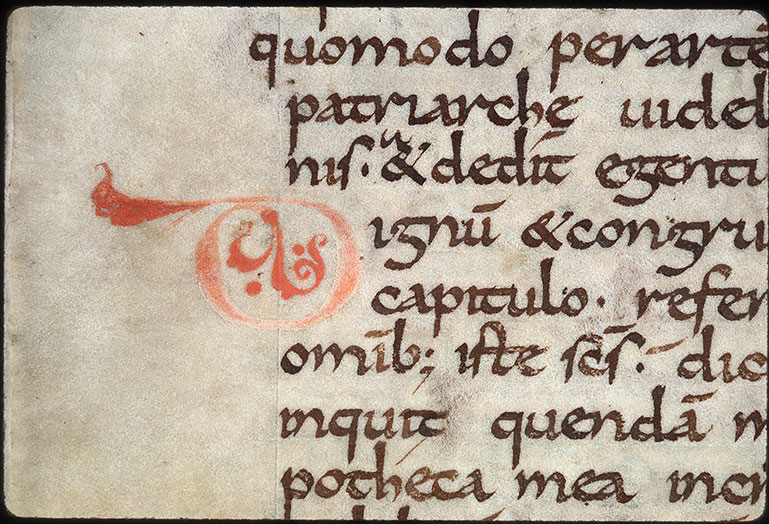 quomodo per artē
patriarche uided
nis· ur & dedit̄ egenti
Dignū & congru
capitulo· refer
omīb; iste sc̄s· dic
inquit quendā m
potheca mea in